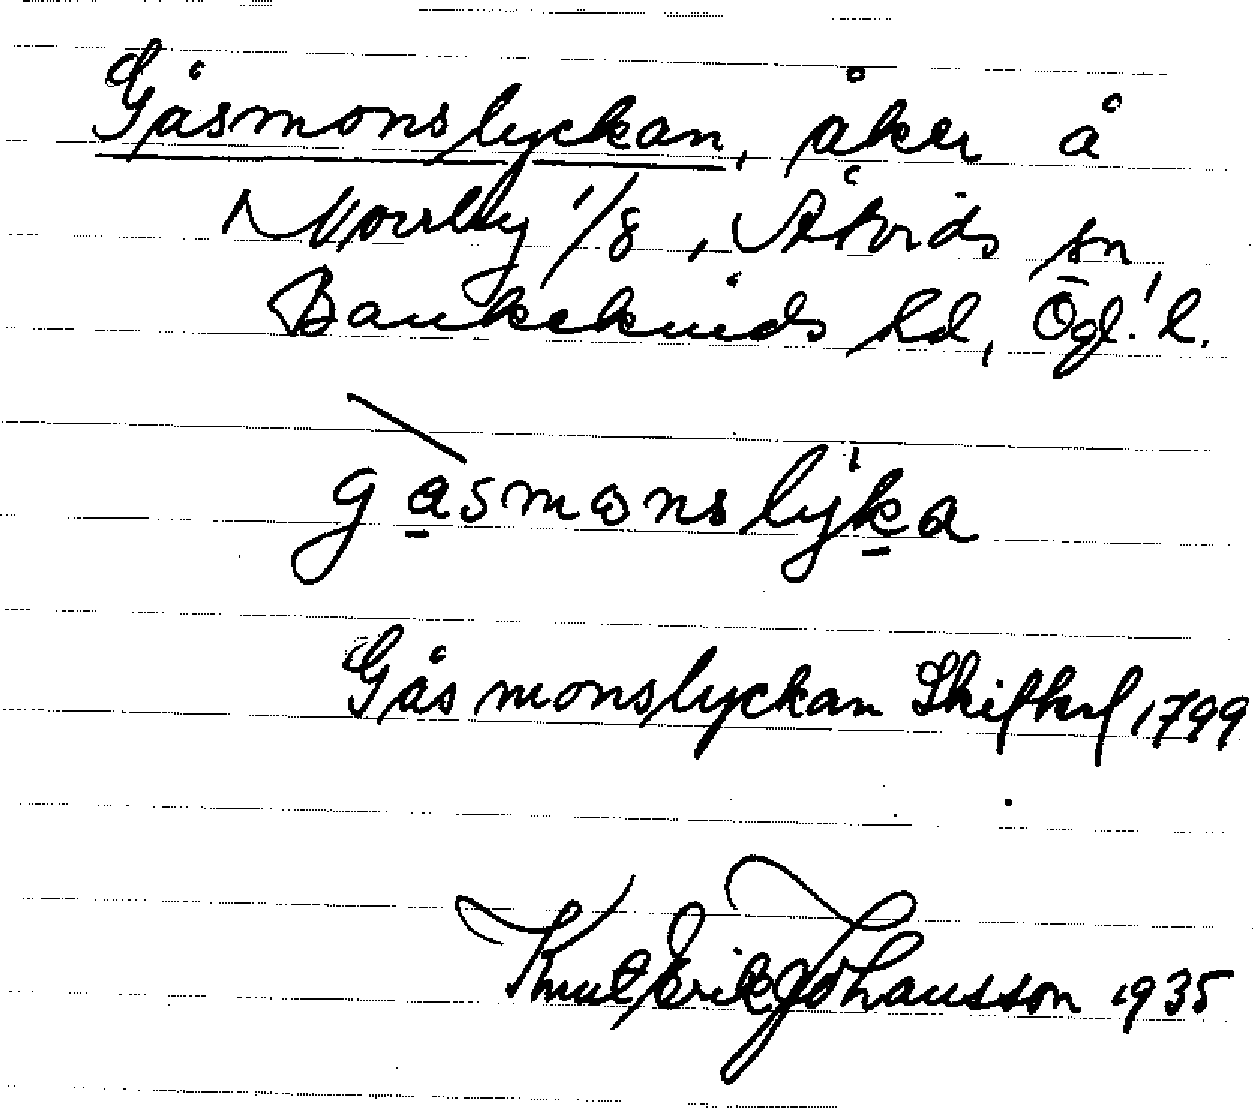 Gåsmonslyckan, åker å
Norrby 1/8, Åtvids sn
Bankekinds hd, Ögl. l.
gasmonslyka
Gåsmonslyckan Skifteshl 1799
Knut Erik Johansson 1935